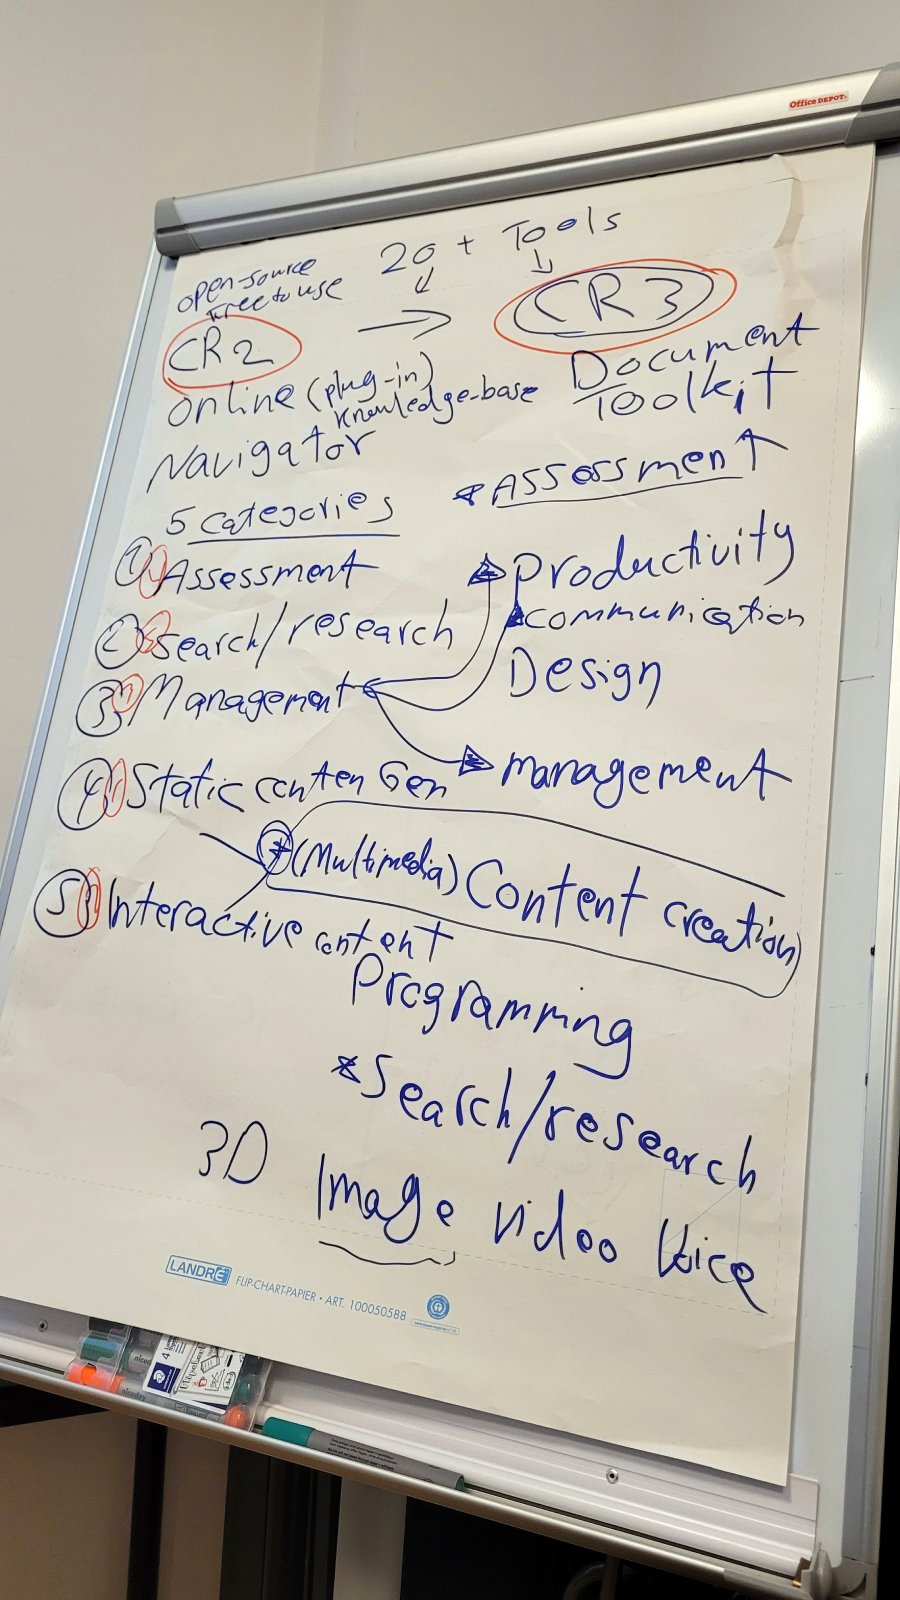 Office DEPOT
20 + Tools
open-source
free to use
CR2
CR3
Online (plug-in)
knowledge-base
Navigator
Document
Toolkit
5 categories
* Assessment
1 Assessment
Productivity
2 search/research
communication
3 Management
Design
management
4 Static conten Gen
* (Multimedia) Content creation
5 Interactive content
Programming
* Search/research
3D
Image video Voice
LANDRÉ FLIP-CHART-PAPIER • ART. 100050588